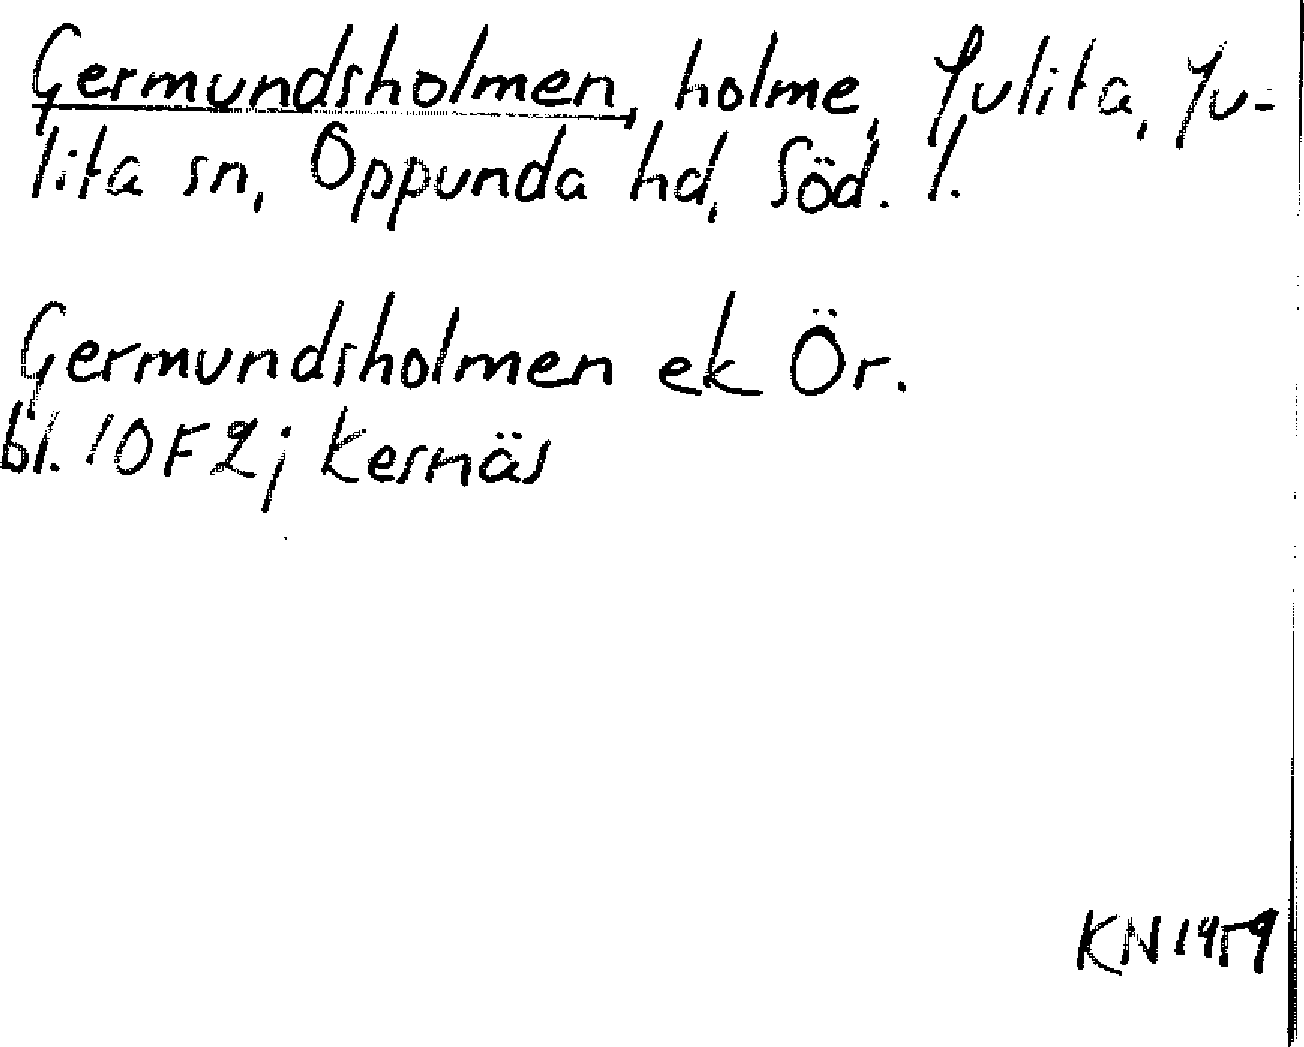 Germundsholmen, holme, Julita, Ju-
lita sn, Oppunda hd, Söd. l.
Germundsholmen ek Ör.
bl. 10F2j Kesnäs
KN 1959